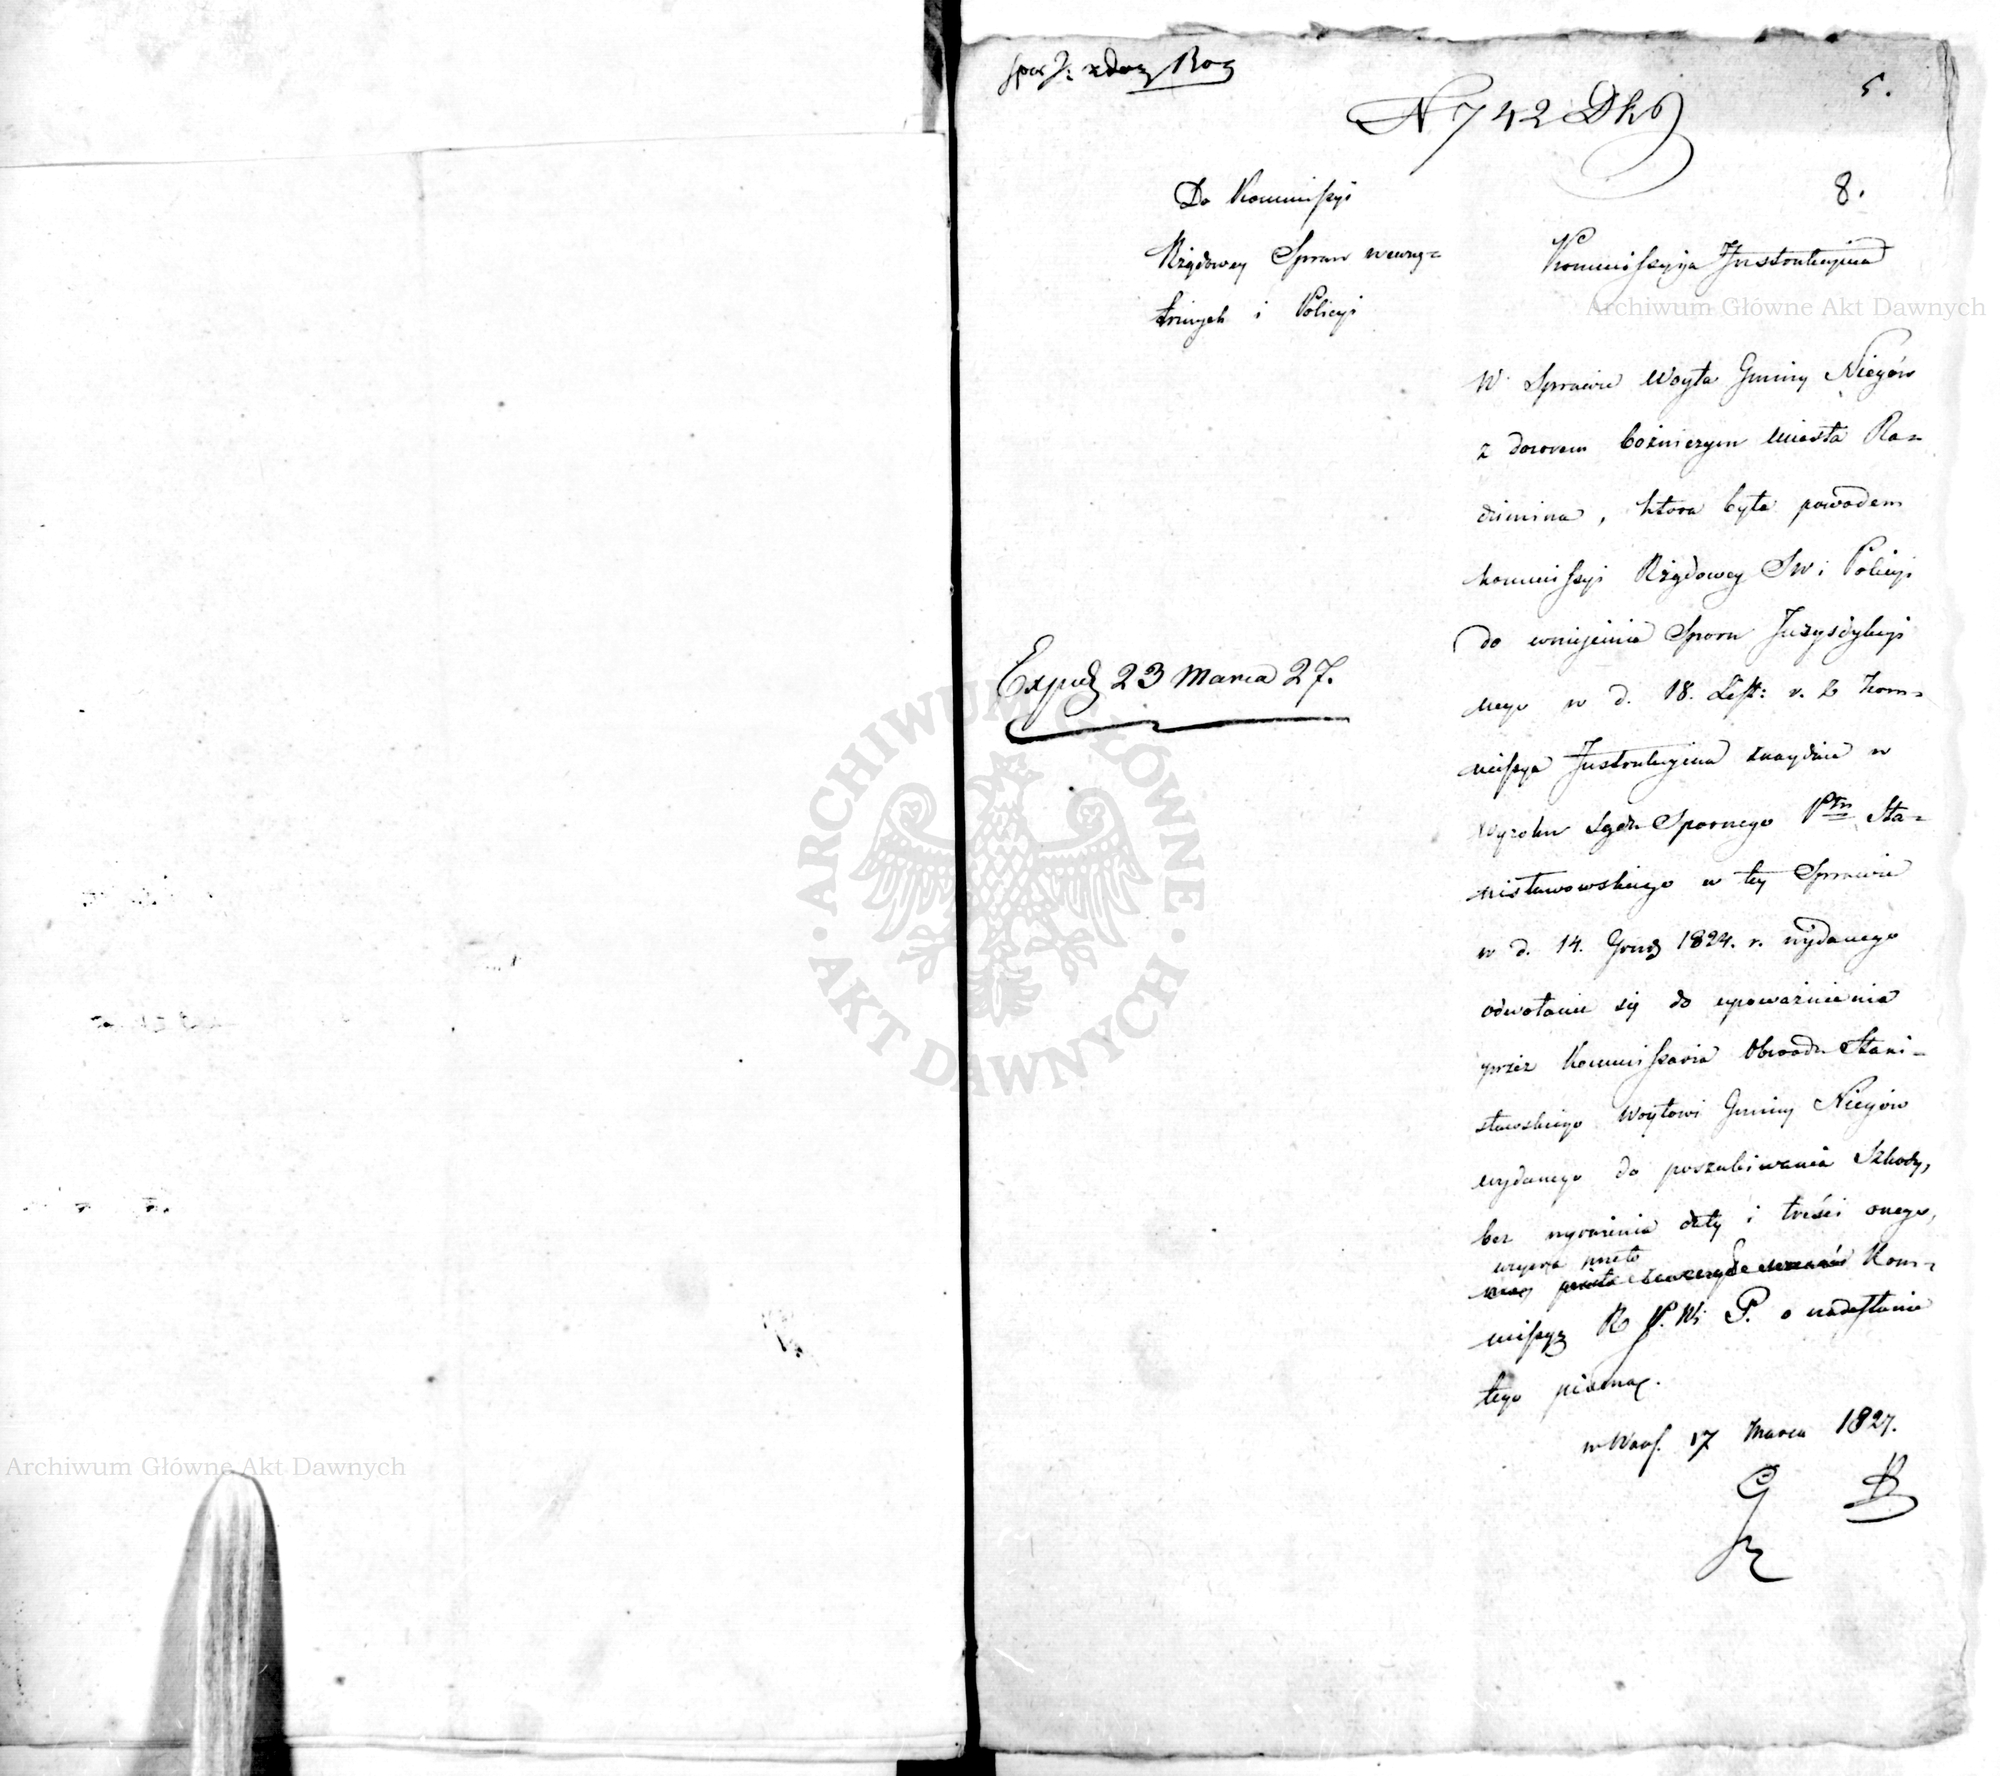 N 742 Dks
5.
8.
Do Kommissyi
Rządowey Spraw wewnę=
trznych i Policyi
Kommissyia Instrukcyina
Archiwum Główne Akt Dawnych
W Sprawie Woyta Gminy Niegów
z dozorem bożniczym Miasta Ra=
dzimina, która była powodem
Kommissyi Rządowey SW i Policyi
do wniesienia Sporu Juryzdykcyi
nego w d. 18. List: r. z Kom=
missya Instrukcyina znayduie w
Wyroku Sądu Spornego Ptu Sta=
nisławowskiego w tey Sprawie
w d. 14. Grud 1824. r. wydanego
odwołanie się do upoważnienia
przez Kommissarza Obwodu Stani=
sławskiego Woytowi Gminy Niegów
wydanego do poszukiwania Szkody,
bez wyrażenia daty i treści onego,
wzywa przeto
Kom=
missyą R S. W. i P. o nadesłanie
tego pisma.
w Wars. 17 Marca 1827.
Exped 23 Marca 27.
ARCHIWUM GŁÓWNE
AKT DAWNYCH
Archiwum Główne Akt Dawnych